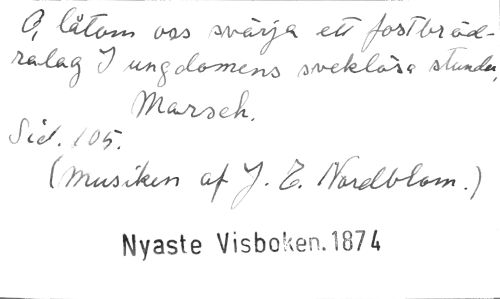 O, låtom oss svärja ett fostbröd-
ralag I ungdomens sveklösa stunder,
Marsch.
Sid. 105.
(Musiken af J. E. Nordblom.)
Nyaste Visboken. 1874